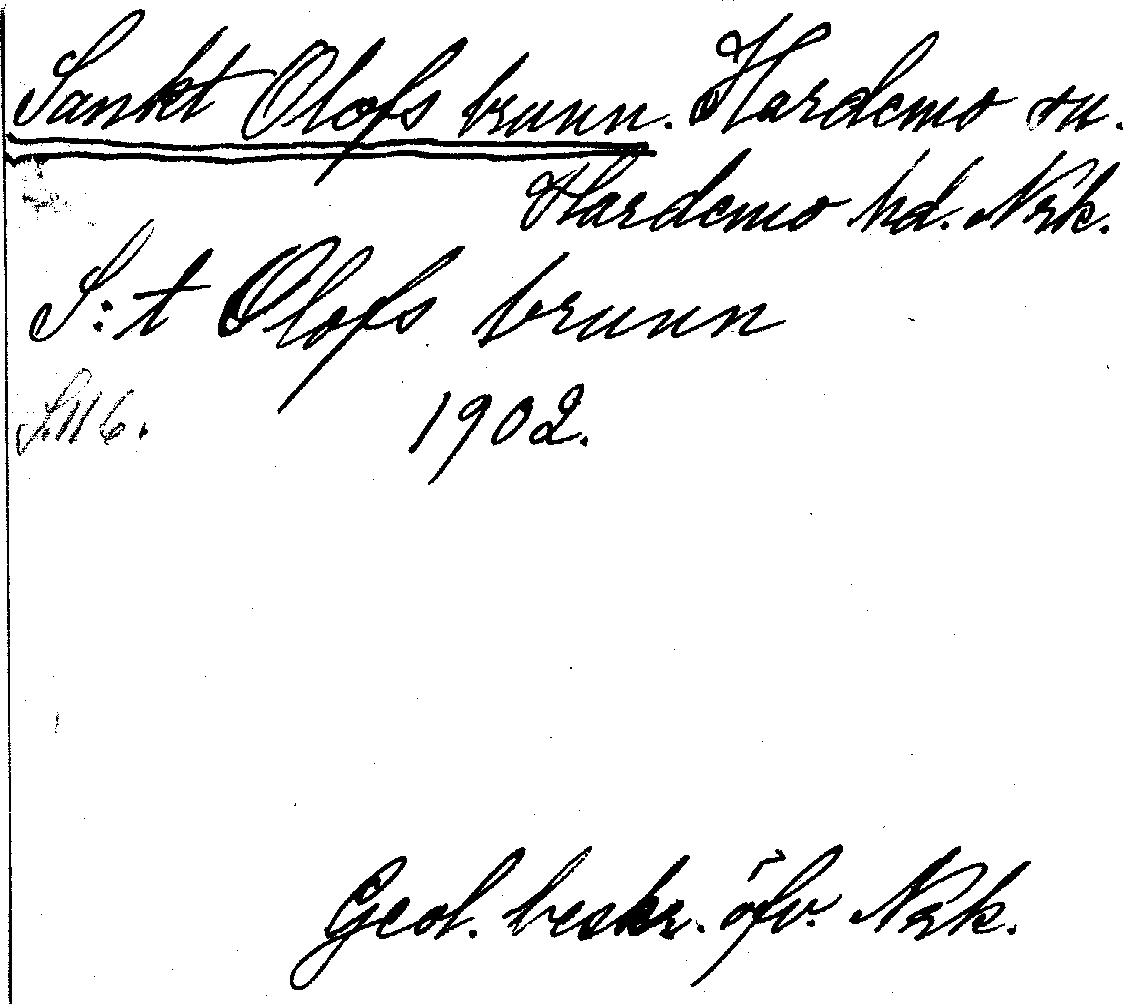 Sankt Olofs brunn. Hardemo sn.
Hardemo hd. Nrk.
S:t Olofs brunn
S. 116. 1902.
Geol. beskr. öfv. Nrk.